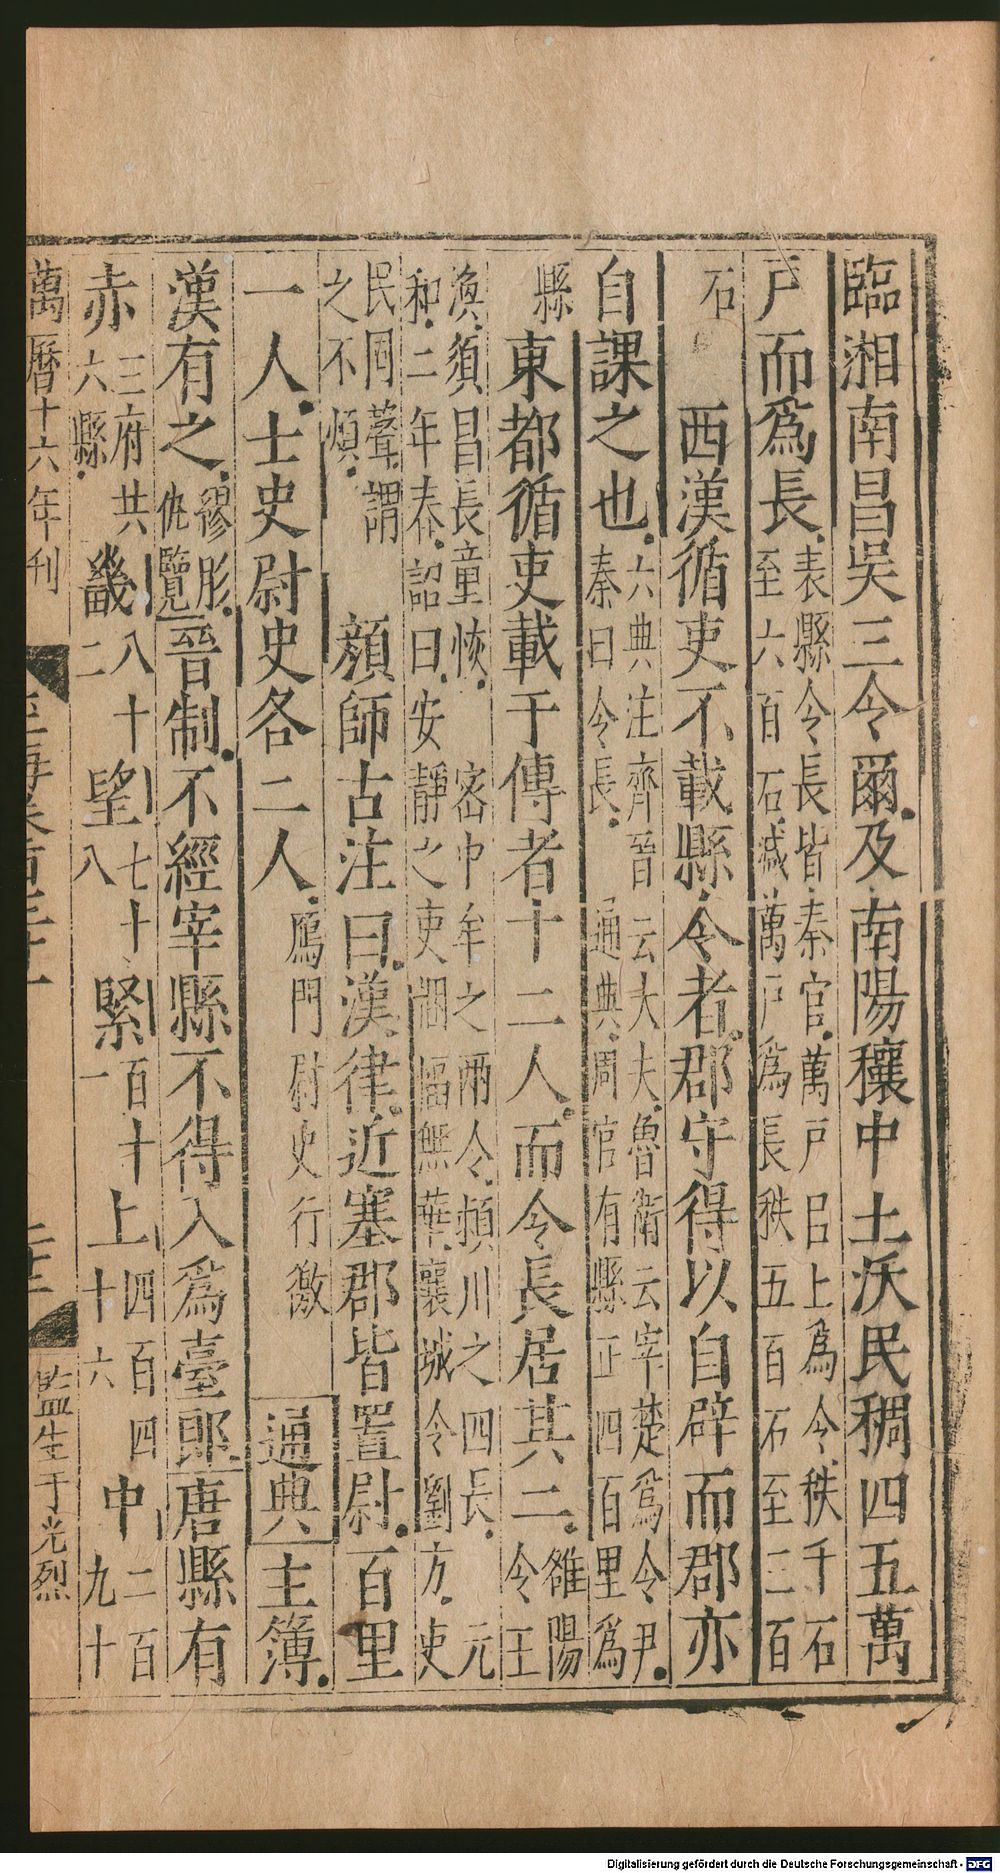 臨湘南昌吳三令爾及南陽穰中土沃民稠四五萬
戶而爲長表縣令長皆秦官萬戶吕上爲令秩千石至六百石減萬戶爲長秩五百石至三百
石 西漢循吏不載縣令者郡守得以自辟而郡亦
自課之也六典注齊晉云大夫魯衛云宰楚爲令尹秦曰令長 通典周官有縣正四百里爲
縣 東都循吏載于傳者十二人而令長居其二雒陽令王
渙須昌長童恢 密中牟之兩令潁川之四長 元和二年春詔曰安靜之吏悃愊無華襄城令劉方吏
民同聲謂之不煩 顏師古注曰漢律近塞郡皆置尉百里
一人士史尉史各二人鴈門尉史行徼 通典主簿
漢有之繆肜仇覽晉制不經宰縣不得入爲臺郎唐縣有
赤三府共六縣畿八十二望七十八緊百十一上四百四十六中二百九十
萬曆十六年刊
監生于光烈
Digitalisierung gefördert durch die Deutsche Forschungsgemeinschaft - DFG